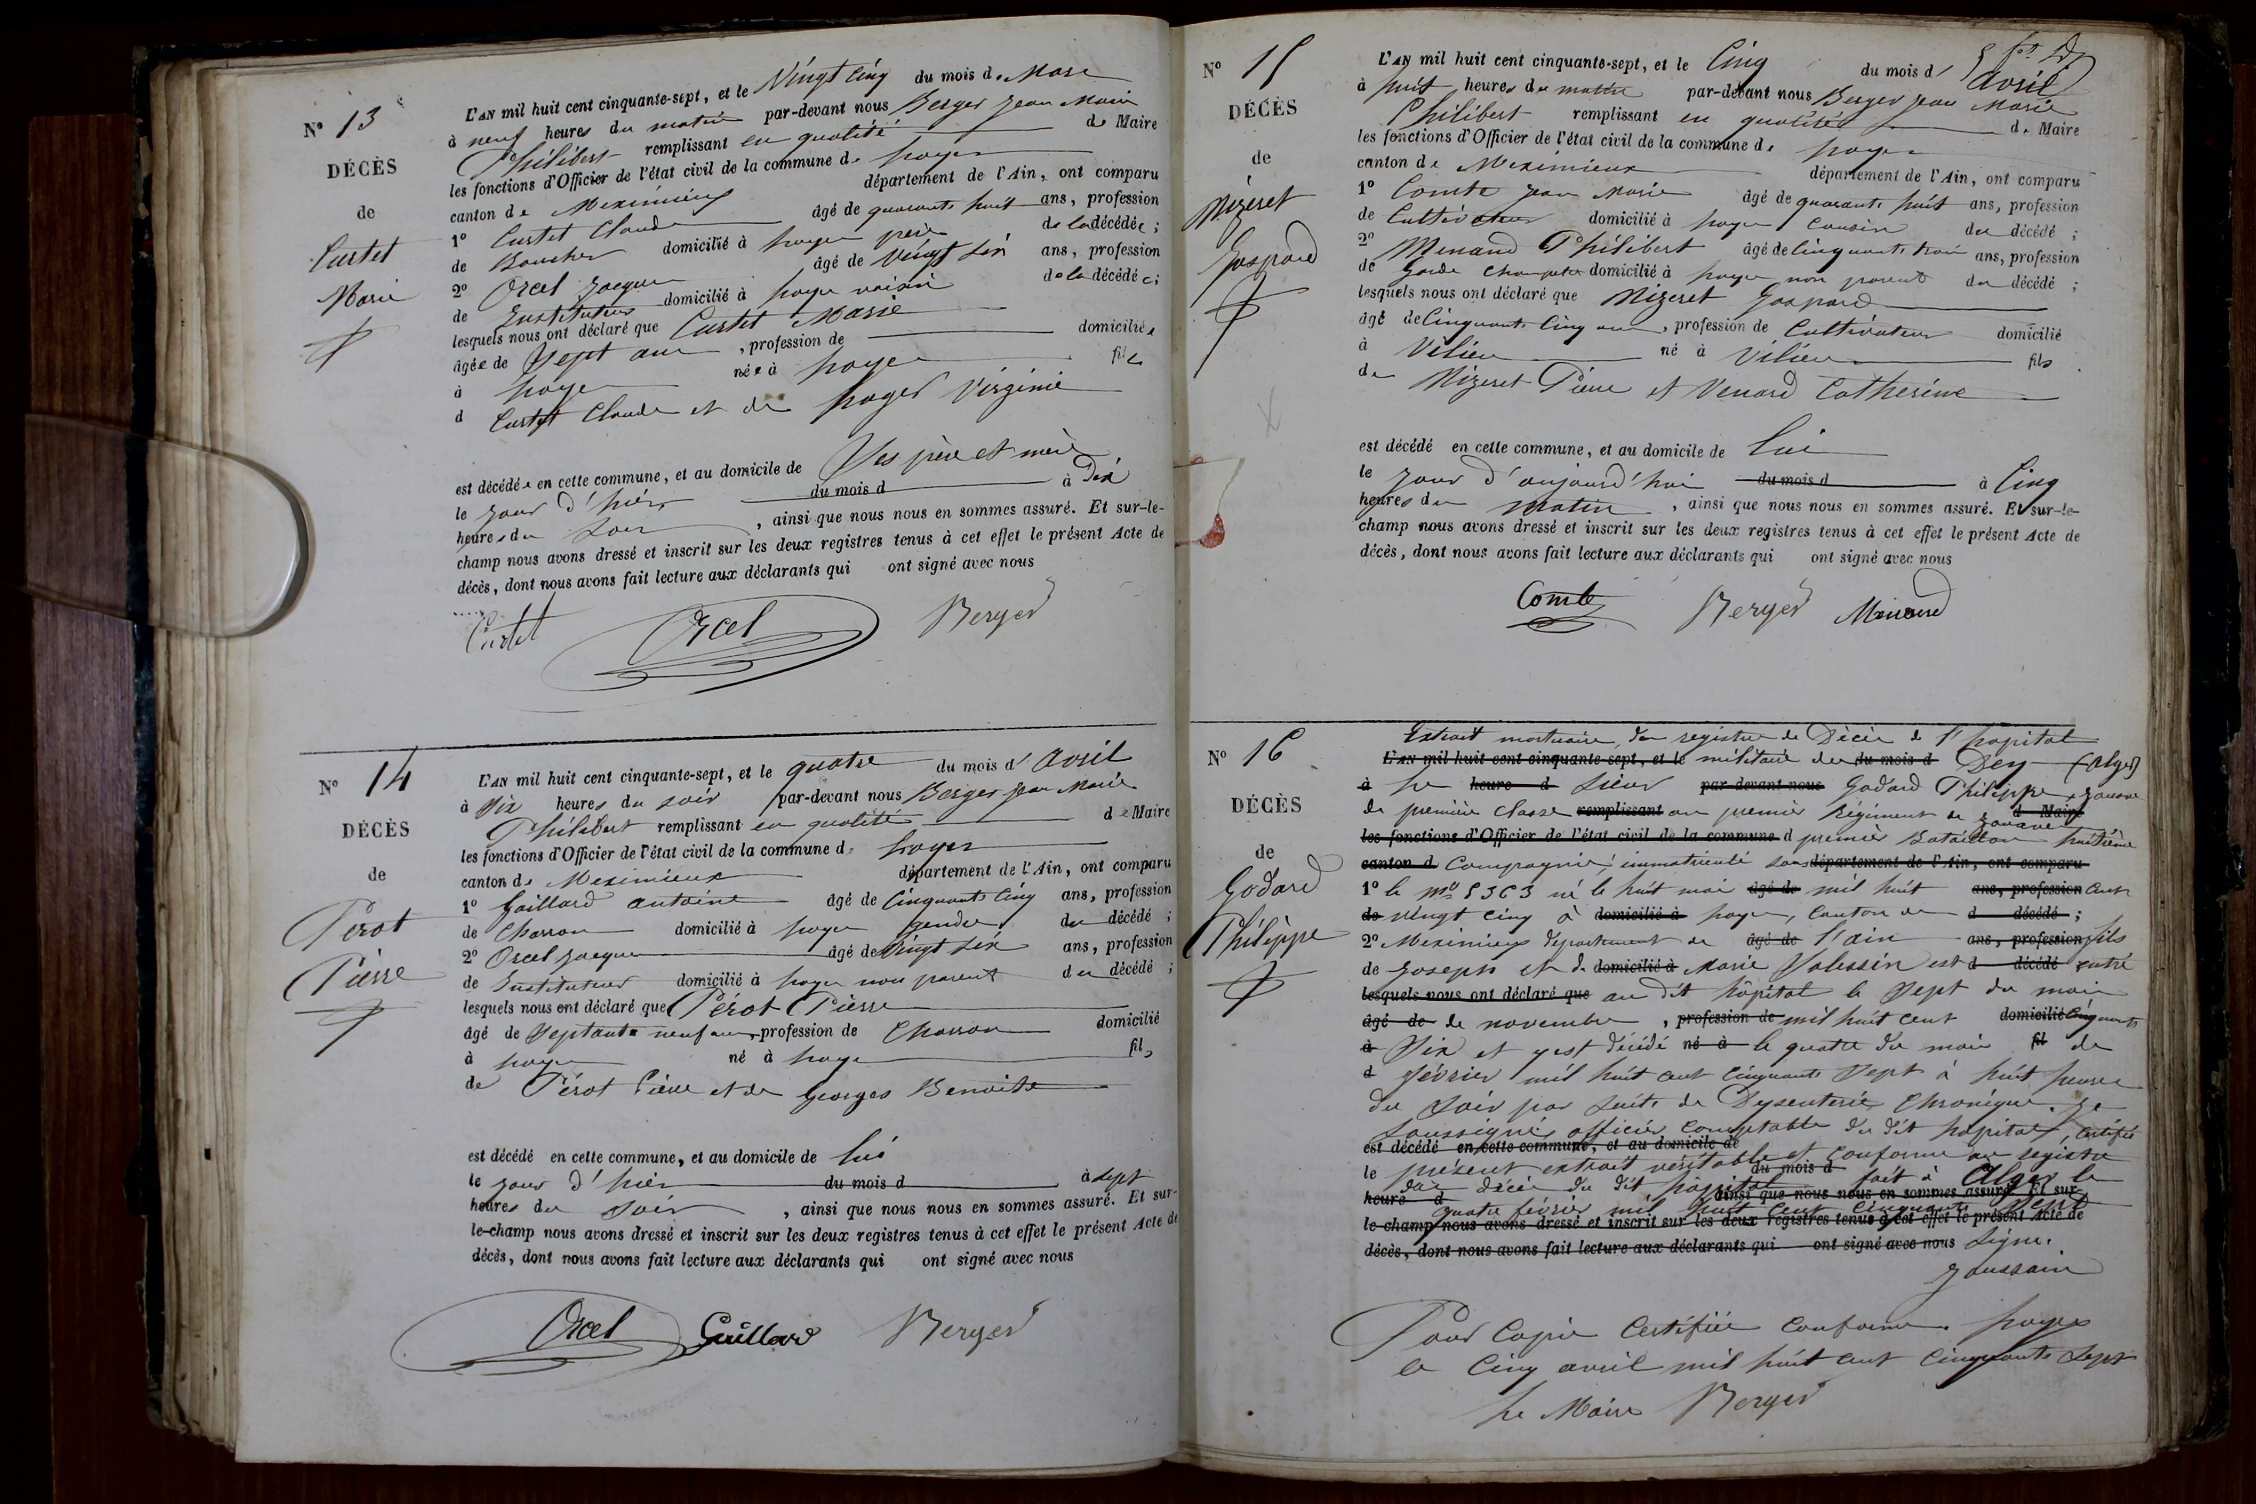 N° 13
DÉCÈS
de
Curtet
Marie
L'AN mil huit cent cinquante-sept, et le Vingt cinq du mois de Mars
à neuf heures du matin par-devant nous Berger Jean Marie
Philibert remplissant en qualité de Maire
les fonctions d'Officier de l'état civil de la commune de Loyes
canton de Meximieux département de l'Ain, ont comparu
1° Curtet Claude âgé de quarante huit ans, profession
de Boucher domicilié à Loyes père de la décédée ;
2° Orcel Jacques âgé de Vingt six ans, profession
de Instituteur domicilié à Loyes voisin de la décédée ;
lesquels nous ont déclaré que Curtet Marie
âgée de Sept ans, profession de domiciliée
à Loyes née à Loyes fille
d Curtet Claude et de Loyes Virginie
est décédée en cette commune, et au domicile de Ses père et mère
le jour d'hier du mois d à Dix
heures du Soir, ainsi que nous nous en sommes assuré. Et sur-le-
champ nous avons dressé et inscrit sur les deux registres tenus à cet effet le présent Acte de
décès, dont nous avons fait lecture aux déclarants qui ont signé avec nous
Curtet Orcel Berger
N° 14
DÉCÈS
de
Pérot
Pierre
L'AN mil huit cent cinquante-sept, et le quatre du mois d' Avril
à Six heures du soir par-devant nous Berger Jean Marie
Philibert remplissant en qualité de Maire
les fonctions d'Officier de l'état civil de la commune de Loyes
canton de Meximieux département de l'Ain, ont comparu
1° Gaillard antoine âgé de Cinquante Cinq ans, profession
de Charron domicilié à Loyes gendre du décédé ;
2° Orcel Jacques âgé de Vingt Six ans, profession
de Instituteur domicilié à Loyes non parent du décédé ;
lesquels nous ont déclaré que Pérot Pierre
âgé de Septante neuf ans, profession de Charron domicilié
à Loyes né à Loyes fils
de Pérot Pierre et de Georges Benoite
est décédé en cette commune, et au domicile de lui
le jour d'hier du mois d à sept
heures du Soir, ainsi que nous nous en sommes assuré. Et sur-
le-champ nous avons dressé et inscrit sur les deux registres tenus à cet effet le présent Acte de
décès, dont nous avons fait lecture aux déclarants qui ont signé avec nous
Orcel Gaillard Berger
N° 15
DÉCÈS
de
Mizeret
Gaspard
L'AN mil huit cent cinquante-sept, et le Cinq du mois d' Avril
à huit heures du matin par-devant nous Berger Jean Marie
Philibert remplissant en qualité de Maire
les fonctions d'Officier de l'état civil de la commune de Loyes
canton de Meximieux département de l'Ain, ont comparu
1° Comte Jean Marie âgé de quarante huit ans, profession
de Cultivateur domicilié à Loyes Cousin du décédé ;
2° Menand Philibert âgé de Cinquante trois ans, profession
de Garde Champêtre domicilié à Loyes non parent du décédé ;
lesquels nous ont déclaré que Mizeret Gaspard
âgé de Cinquante Cinq ans, profession de Cultivateur domicilié
à Vilieu né à Vilieu fils
de Mizeret Pierre et Venard Catherine
est décédé en cette commune, et au domicile de lui
le jour d'aujourd'hui du mois d à Cinq
heures du matin, ainsi que nous nous en sommes assuré. Et sur-le-
champ nous avons dressé et inscrit sur les deux registres tenus à cet effet le présent Acte de
décès, dont nous avons fait lecture aux déclarants qui ont signé avec nous
Comte Berger Menand
N° 16
DÉCÈS
de
Godard
Philippe
Extrait mortuaire, du registre de Décès de l'hôpital
L'AN mil huit cent cinquante-sept, et le militaire du du mois d Dey (Alger)
à Le heure d Sieur par-devant nous Godard Philippe, zouave
de première classe remplissant au premier Régiment de zouaves d Maire
les fonctions d'Officier de l'état civil de la commune d premier Bataillon huitième
canton d Compagnie, immatriculé sous département de l'Ain, ont comparu
1° le n° 5363 né le huit mai âgé de mil huit ans, profession cent
de vingt cinq à domicilié à Loyes, Canton de d décédé ;
2° Meximieux département de âgé de l'ain ans, profession fils
de Joseph et de domicilié à Marie Valessin est d décédé entré
lesquels nous ont déclaré que au dit hôpital le Sept du mois
âgé de de novembre, profession de mil huit cent domicilié Cinquante
à Six et y est décédé né à le quatre du mois fil de
d février mil huit cent cinquante Sept à huit heures
du Soir par suite de Dysenterie Chronique. Je
soussigné, officier comptable du dit hôpital, certifie
est décédé en cette commune, et au domicile de
le présent extrait véritable et conforme au registre du mois d
des décès du dit hôpital fait à Alger le
heure d ainsi que nous nous en sommes assuré. Et sur-
quatre février mil huit cent cinquante Sept
le-champ nous avons dressé et inscrit sur les deux registres tenus à cet effet le présent Acte de
décès, dont nous avons fait lecture aux déclarants qui ont signé avec nous Signé.
Joussain
Pour Copie Certifiée conforme. Loyes
le Cinq avril mil huit cent cinquante sept
Le Maire Berger